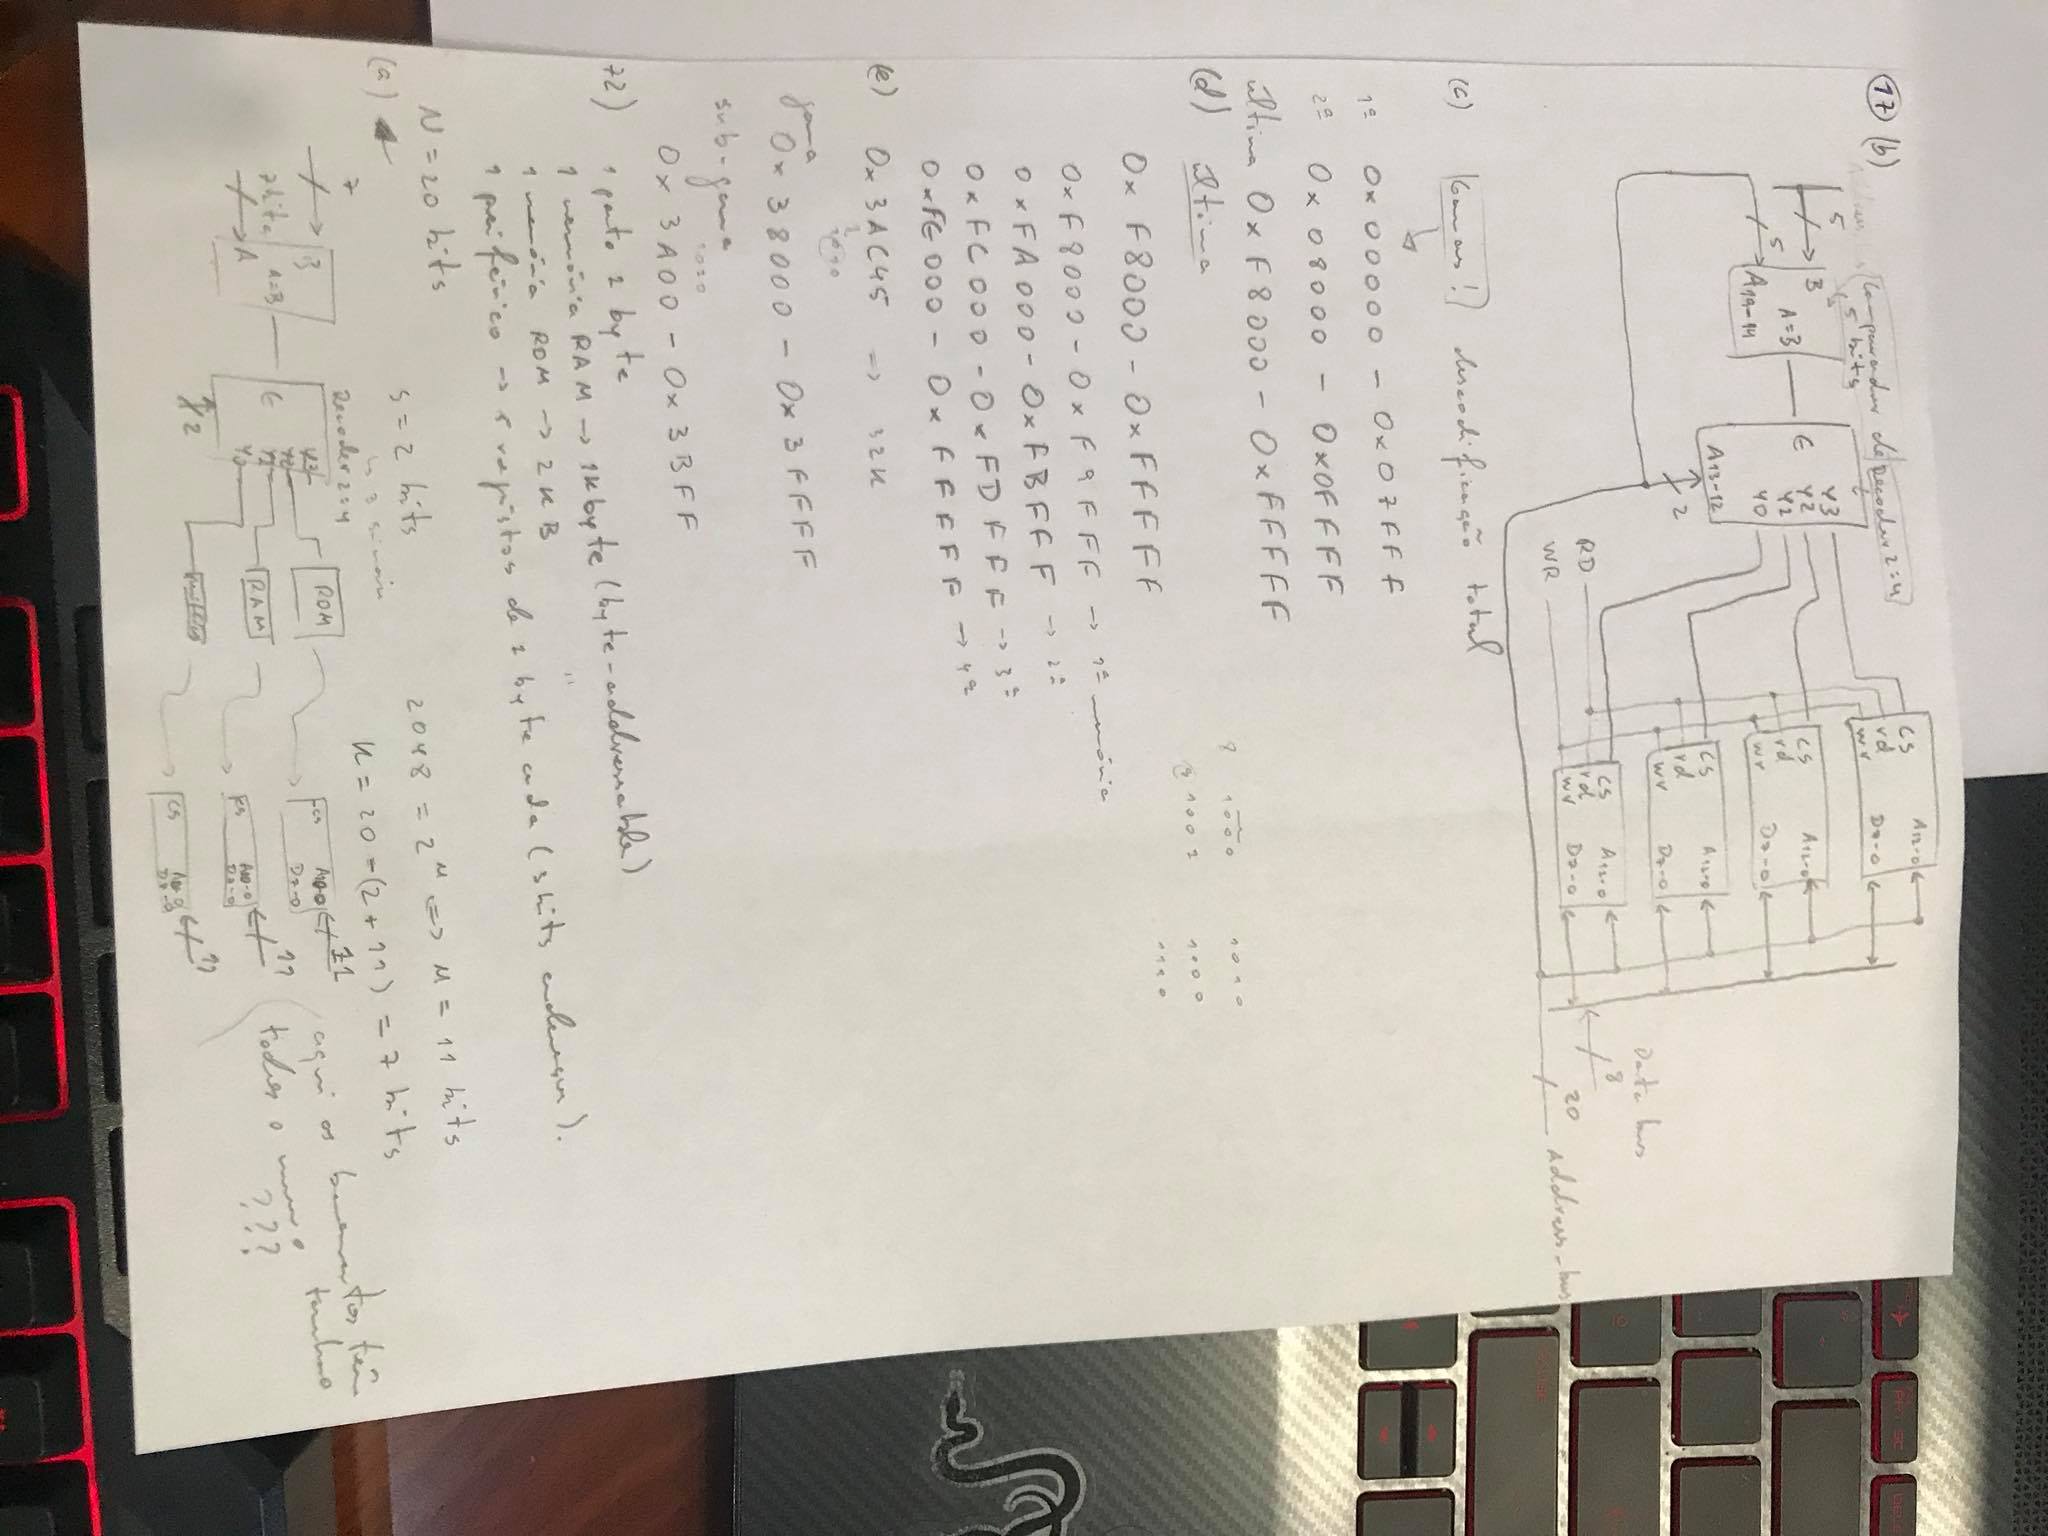 17 (b)
Comparador de 5 bits
Decoder 2:4
5
B
A=B
5
A19-14
E
Y3
Y2
Y1
Y0
A13-12
2
CS
rd
wr
A12-0
D7-0
CS
rd
wr
A12-0
D7-0
CS
rd
wr
A12-0
D7-0
CS
rd
wr
A12-0
D7-0
RD
WR
Data bus
8
20
Address-bus
(c) Gamas! descodificação total
1ª 0x00000 - 0x07FFF
2ª 0x08000 - 0x0FFFF
última 0xF8000 - 0xFFFFF
(d) última
8 1000 1010
9 1001 1000
1110
0xF8000 - 0xFFFFF
0xF8000 - 0xF9FFF → 1ª memória
0xFA000 - 0xFBFFF → 2ª
0xFC000 - 0xFDFFF → 3ª
0xFE000 - 0xFFFFF → 4ª
(e) 0x3AC45 → 32K
1010
gama
0x38000 - 0x3FFFF
sub-gama
1010
0x3A00 - 0x3BFF
72) 1 porto 1 byte
1 memória RAM → 1Kbyte (byte-addressable)
1 memória ROM → 2KB "
1 periférico → 5 registos de 1 byte cada (3 bits endereços).
N = 20 bits
(a)
s = 2 bits
2048 = 2^M <=> M = 11 bits
K = 20 - (2+11) = 7 bits
Decoder 2:4
7
B
A=B
7 bits
A
E
Y3
Y2
Y1
Y0
2
ROM
RAM
CS
A10-0
D7-0
11
CS
A10-0
D7-0
11
CS
A10-0
D7-0
11
aqui os barramentos têm
todos o mesmo tamanho
???